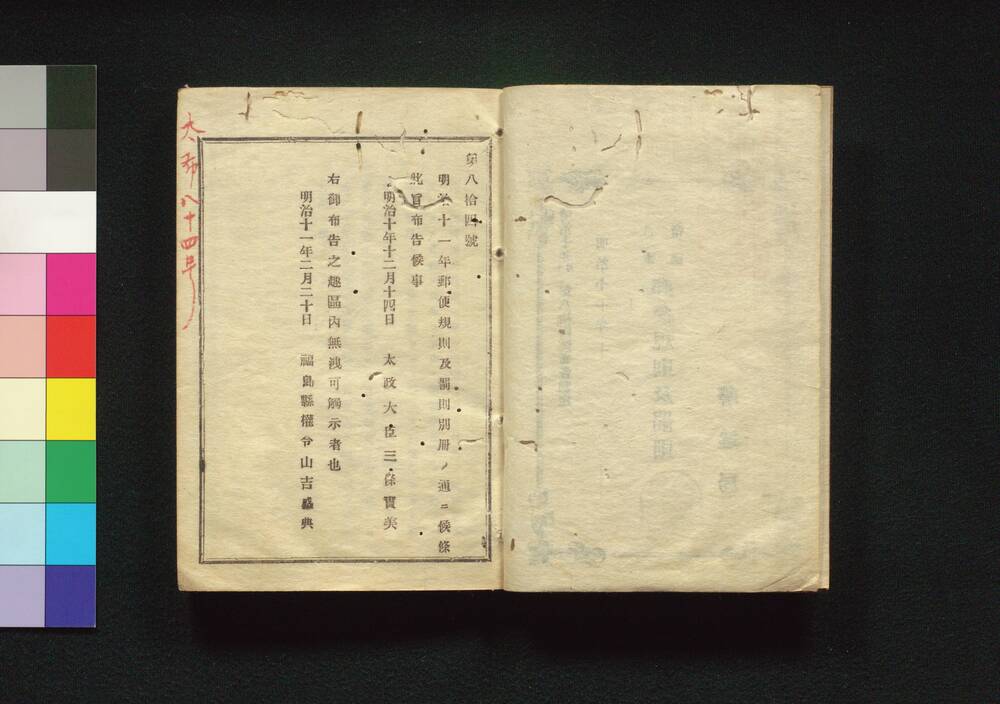 第八拾四號
明治十一年郵便規則及罰則別冊ノ通ニ候條
此旨布告候事
明治十年十二月十四日 太政大臣三條實美
右御布告之趣區內無洩可觸示者也
明治十一年二月二十日 福島縣權令山吉盛典
太布八十四号